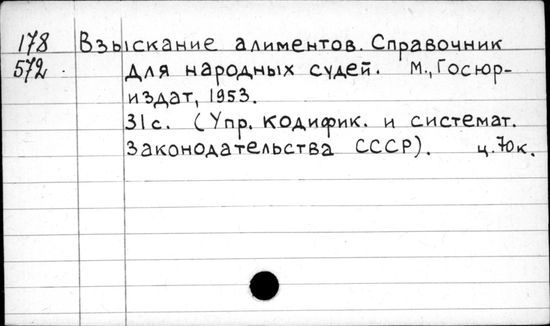 178 Взыскание алиментов. Справочник
572. для народных судей. М., Госюр-
издат, 1953.
31с. (Упр. кодифик. и системат.
законодательства СССР). ц. 70к.